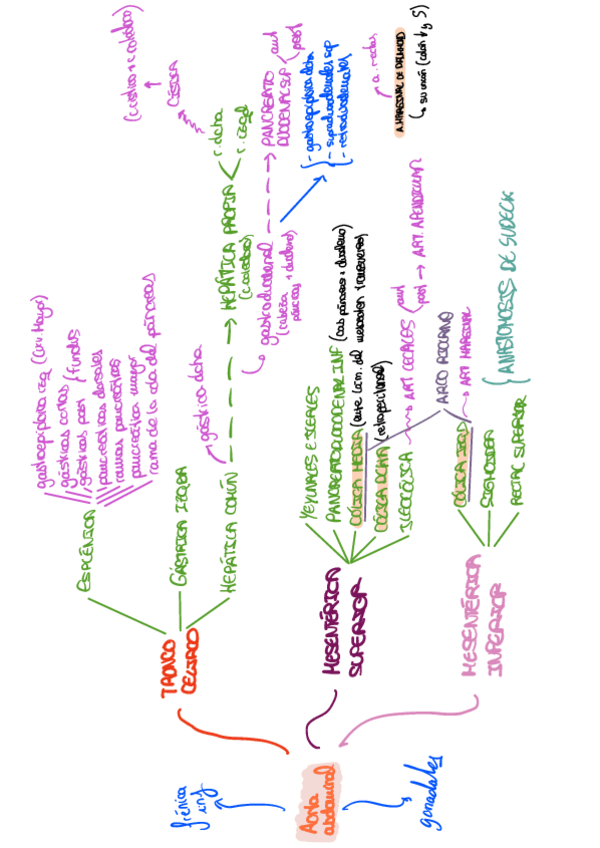 Aorta
abdominal
frénica
inf
gonadales
TRONCO
CELIACO
ESPLÉNICA
gastroepiploica izq (curv Mayor)
gástricas cortas
gástricas post } fundus
pancreáticas dorsales
ramas pancreáticas
pancreática mayor
rama de la cola del páncreas
GÁSTRICA IZQDA
HEPÁTICA COMÚN
gástrica dcha
HEPÁTICA PROPIA
(c. colédoco)
r. dcha
r. izqd
CÍSTICA
(cístico + c. colédoco)
gastroduodenal
(cabeza
páncreas + duodeno)
PANCREATO
DUODENAL SUP
ant
post
- gastroepiploica dcha
- supraduodenales sup
- retroduodenales
MESENTÉRICA
SUPERIOR
YEYUNALES E ILEALES
PANCREATODUODENAL INF (cab páncreas + duodeno)
CÓLICA MEDIA (entre lám. del
mesocolon transverso)
CÓLICA DCHA (retroperitoneal)
ILEOCÓLICA
ART CECALES
ant
post → ART. APENDICULAR
ARCO RIOLANO
MESENTÉRICA
INFERIOR
CÓLICA IZQD
ART MARGINAL
SIGMOIDEA
RECTAL SUPERIOR
ANASTOMOSIS DE SUDECK
a. rectas
A. MARGINAL DE DRUMMOND
su unión (colon t y S)